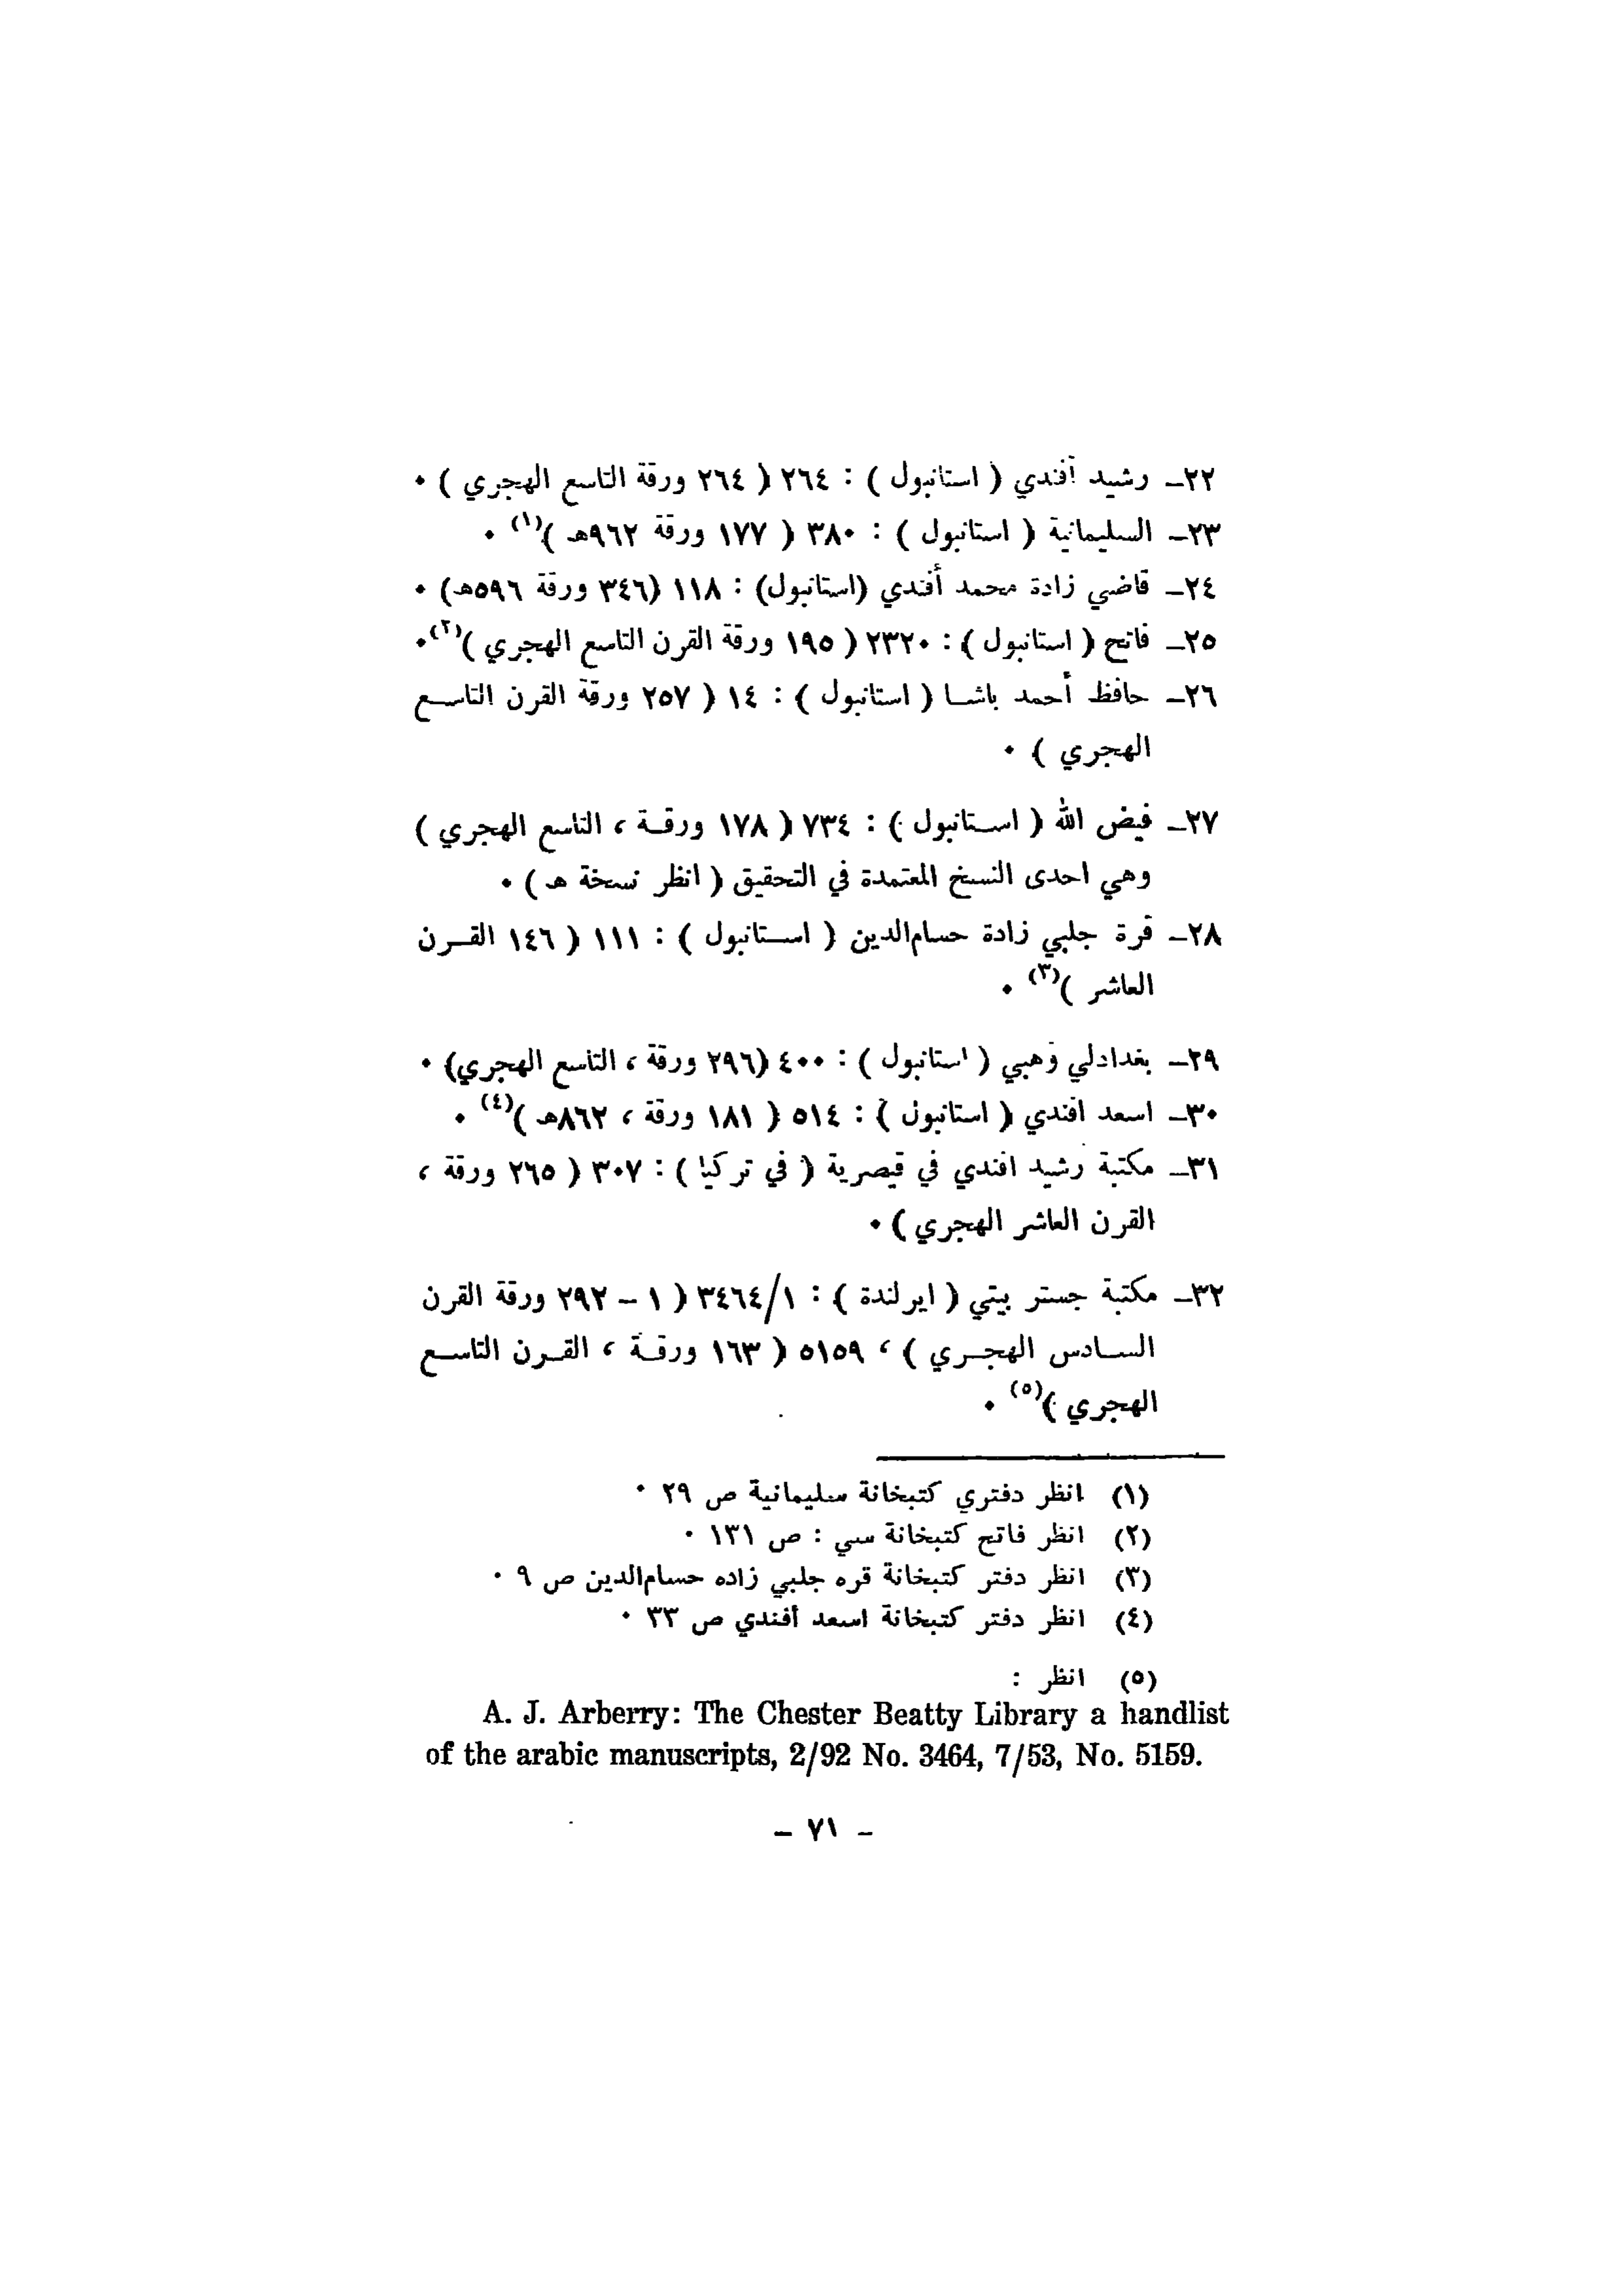 ٢٢ــ رشيد أفندي ( استانبول ) : ٢٦٤ ( ٢٦٤ ورقة التاسع الهجري ) ٠
٢٣ــ السليمانية ( استانبول ) : ٣٨٠ ( ١٧٧ ورقة ٩٦٢هـ )(١) ٠
٢٤ــ قاضي زادة محمد أفندي (استانبول) : ١١٨ (٣٤٦ ورقة ٥٩٦هـ) ٠
٢٥ــ فاتح ( استانبول ) : ٢٣٢٠ ( ١٩٥ ورقة القرن التاسع الهجري )(٢)٠
٢٦ــ حافظ أحمد باشا ( استانبول ) : ١٤ ( ٢٥٧ ورقة القرن التاسع
الهجري ) ٠
٢٧ــ فيض الله ( استانبول ) : ٧٣٤ ( ١٧٨ ورقة ، التاسع الهجري )
وهي احدى النسخ المعتمدة في التحقيق ( انظر نسخة هـ ) ٠
٢٨ــ قرة جلبي زادة حسام‌الدين ( استانبول ) : ١١١ ( ١٤٦ القرن
العاشر )(٣) ٠
٢٩ــ بغدادلي وهبي ( استانبول ) : ٤٠٠ (٢٩٦ ورقة ، التاسع الهجري) ٠
٣٠ــ اسعد افندي ( استانبول ) : ٥١٤ ( ١٨١ ورقة ، ٨٦٢هـ )(٤) ٠
٣١ــ مكتبة رشيد افندي في قيصرية ( في تركيا ) : ٣٠٧ ( ٢٦٥ ورقة ،
القرن العاشر الهجري ) ٠
٣٢ــ مكتبة جستر بيتي ( ايرلندة ) : ٣٤٦٤/١ ( ١ – ٢٩٢ ورقة القرن
السادس الهجري ) ، ٥١٥٩ ( ١٦٣ ورقة ، القرن التاسع
الهجري )(٥) ٠
(١) انظر دفتري كتبخانة سليمانية ص ٢٩ ٠
(٢) انظر فاتح كتبخانة سي : ص ١٣١ ٠
(٣) انظر دفتر كتبخانة قره جلبي زاده حسام‌الدين ص ٩ ٠
(٤) انظر دفتر كتبخانة اسعد أفندي ص ٣٣ ٠
(٥) انظر :
A. J. Arberry: The Chester Beatty Library a handlist
of the arabic manuscripts, 2/92 No. 3464, 7/53, No. 5159.
– ٧١ –